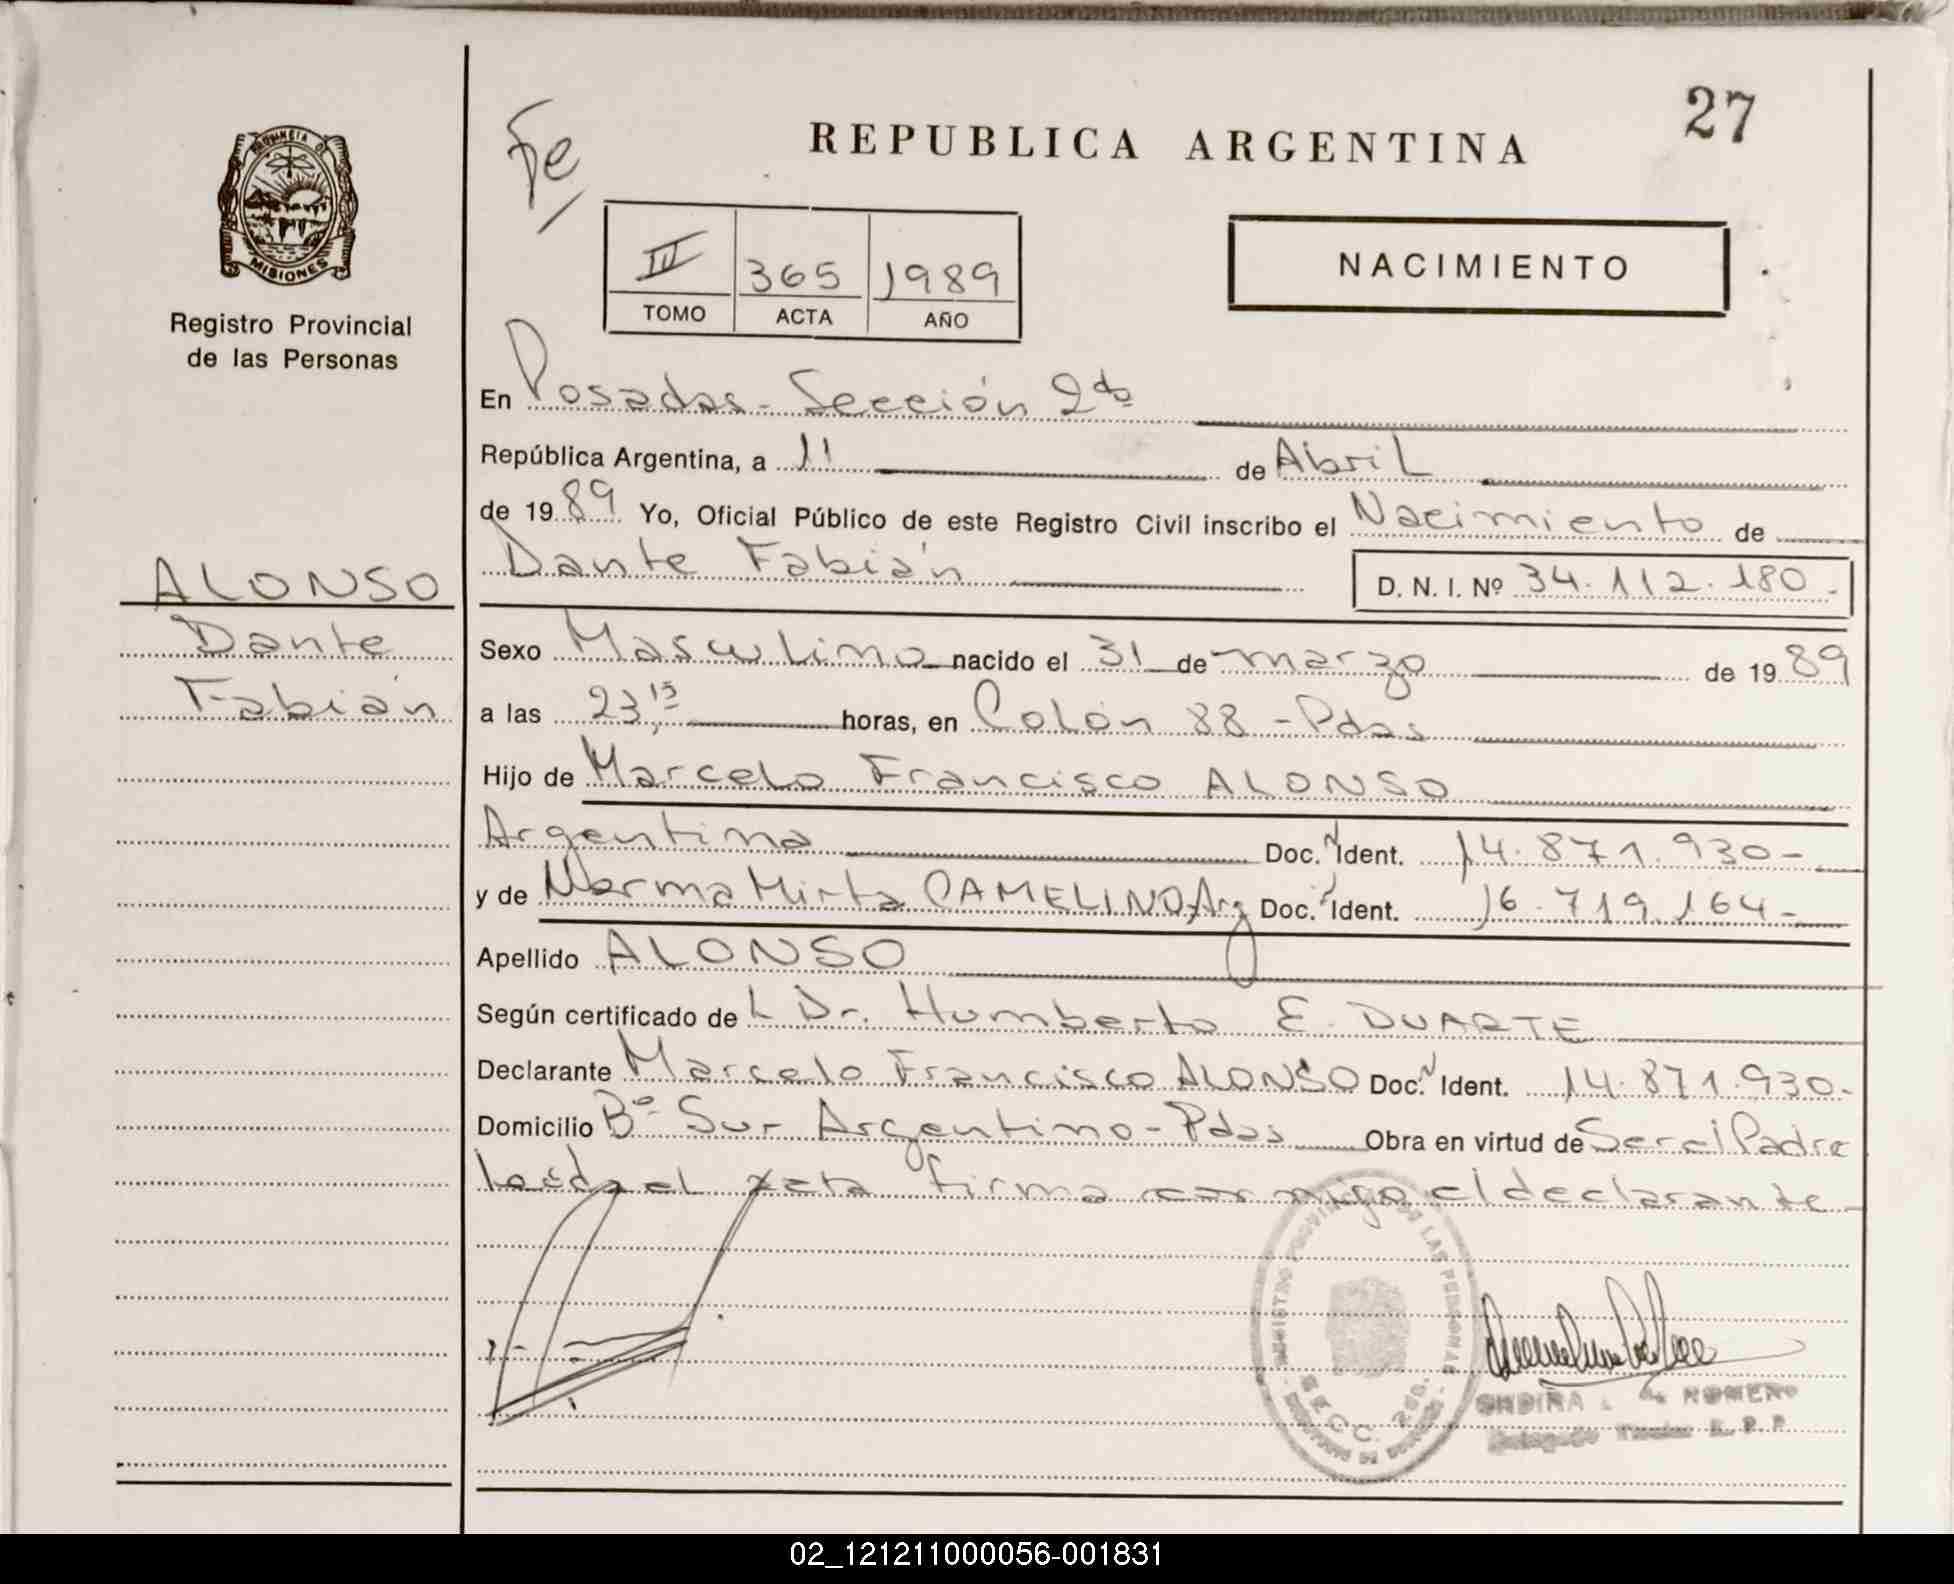 27
REPUBLICA ARGENTINA
Fe
PROVINCIA DE
MISIONES
Registro Provincial
de las Personas
III 365 1989
TOMO ACTA AÑO
NACIMIENTO
En Posadas - Sección 2da
República Argentina, a 11 de Abril
de 1989 Yo, Oficial Público de este Registro Civil inscribo el Nacimiento de
Dante Fabián D. N. I. Nº 34.112.180.-
ALONSO
Dante
Fabián
Sexo Masculino nacido el 31 de marzo de 1989
a las 23,15 horas, en Colón 88 - Pdas
Hijo de Marcelo Francisco ALONSO
Argentina Doc. N Ident. 14.871.930-
y de Norma Mirta CAMELINO, Arg Doc. N Ident. 16.719.164-
Apellido ALONSO
Según certificado de L Dr. Humberto E. DUARTE
Declarante Marcelo Francisco ALONSO Doc. N Ident. 14.871.930-
Domicilio Bº Sur Argentino - Pdas Obra en virtud de Ser el Padre
Leída el acta firma conmigo el declarante-
REGISTRO PROVINCIAL DE LAS PERSONAS
SECC. 2da.
ROMERO
R. P. P.
02_121211000056-001831